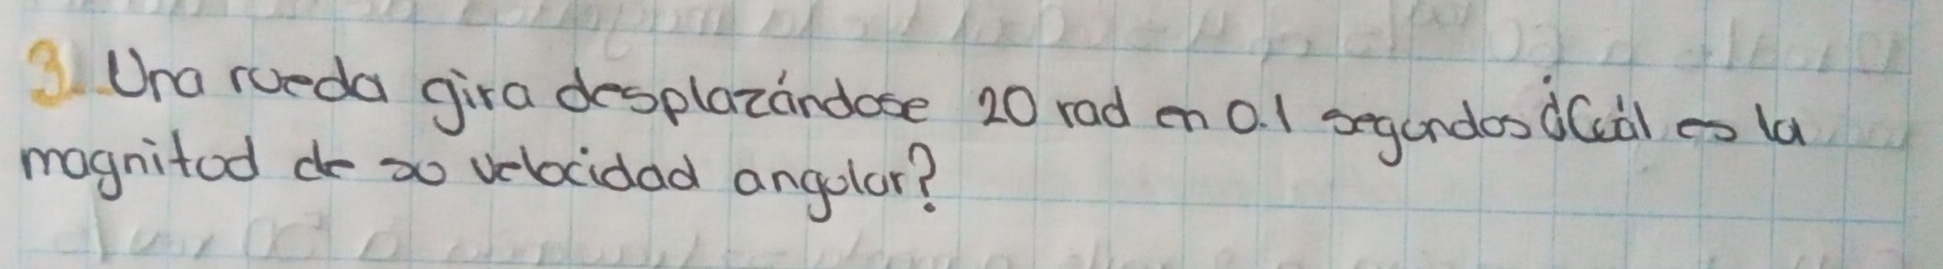 3. Una rueda gira desplazándose 20 rad en 0.1 segundos ¿Cuál es la
magnitud de su velocidad angular?